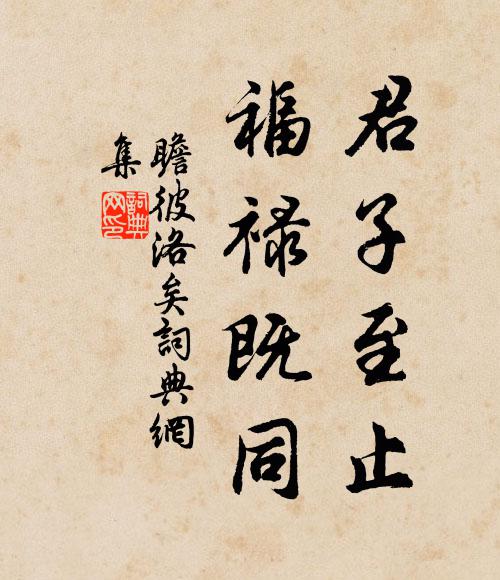 君子至止
福禄既同
瞻彼洛矣詞典網
集
詞典
网印